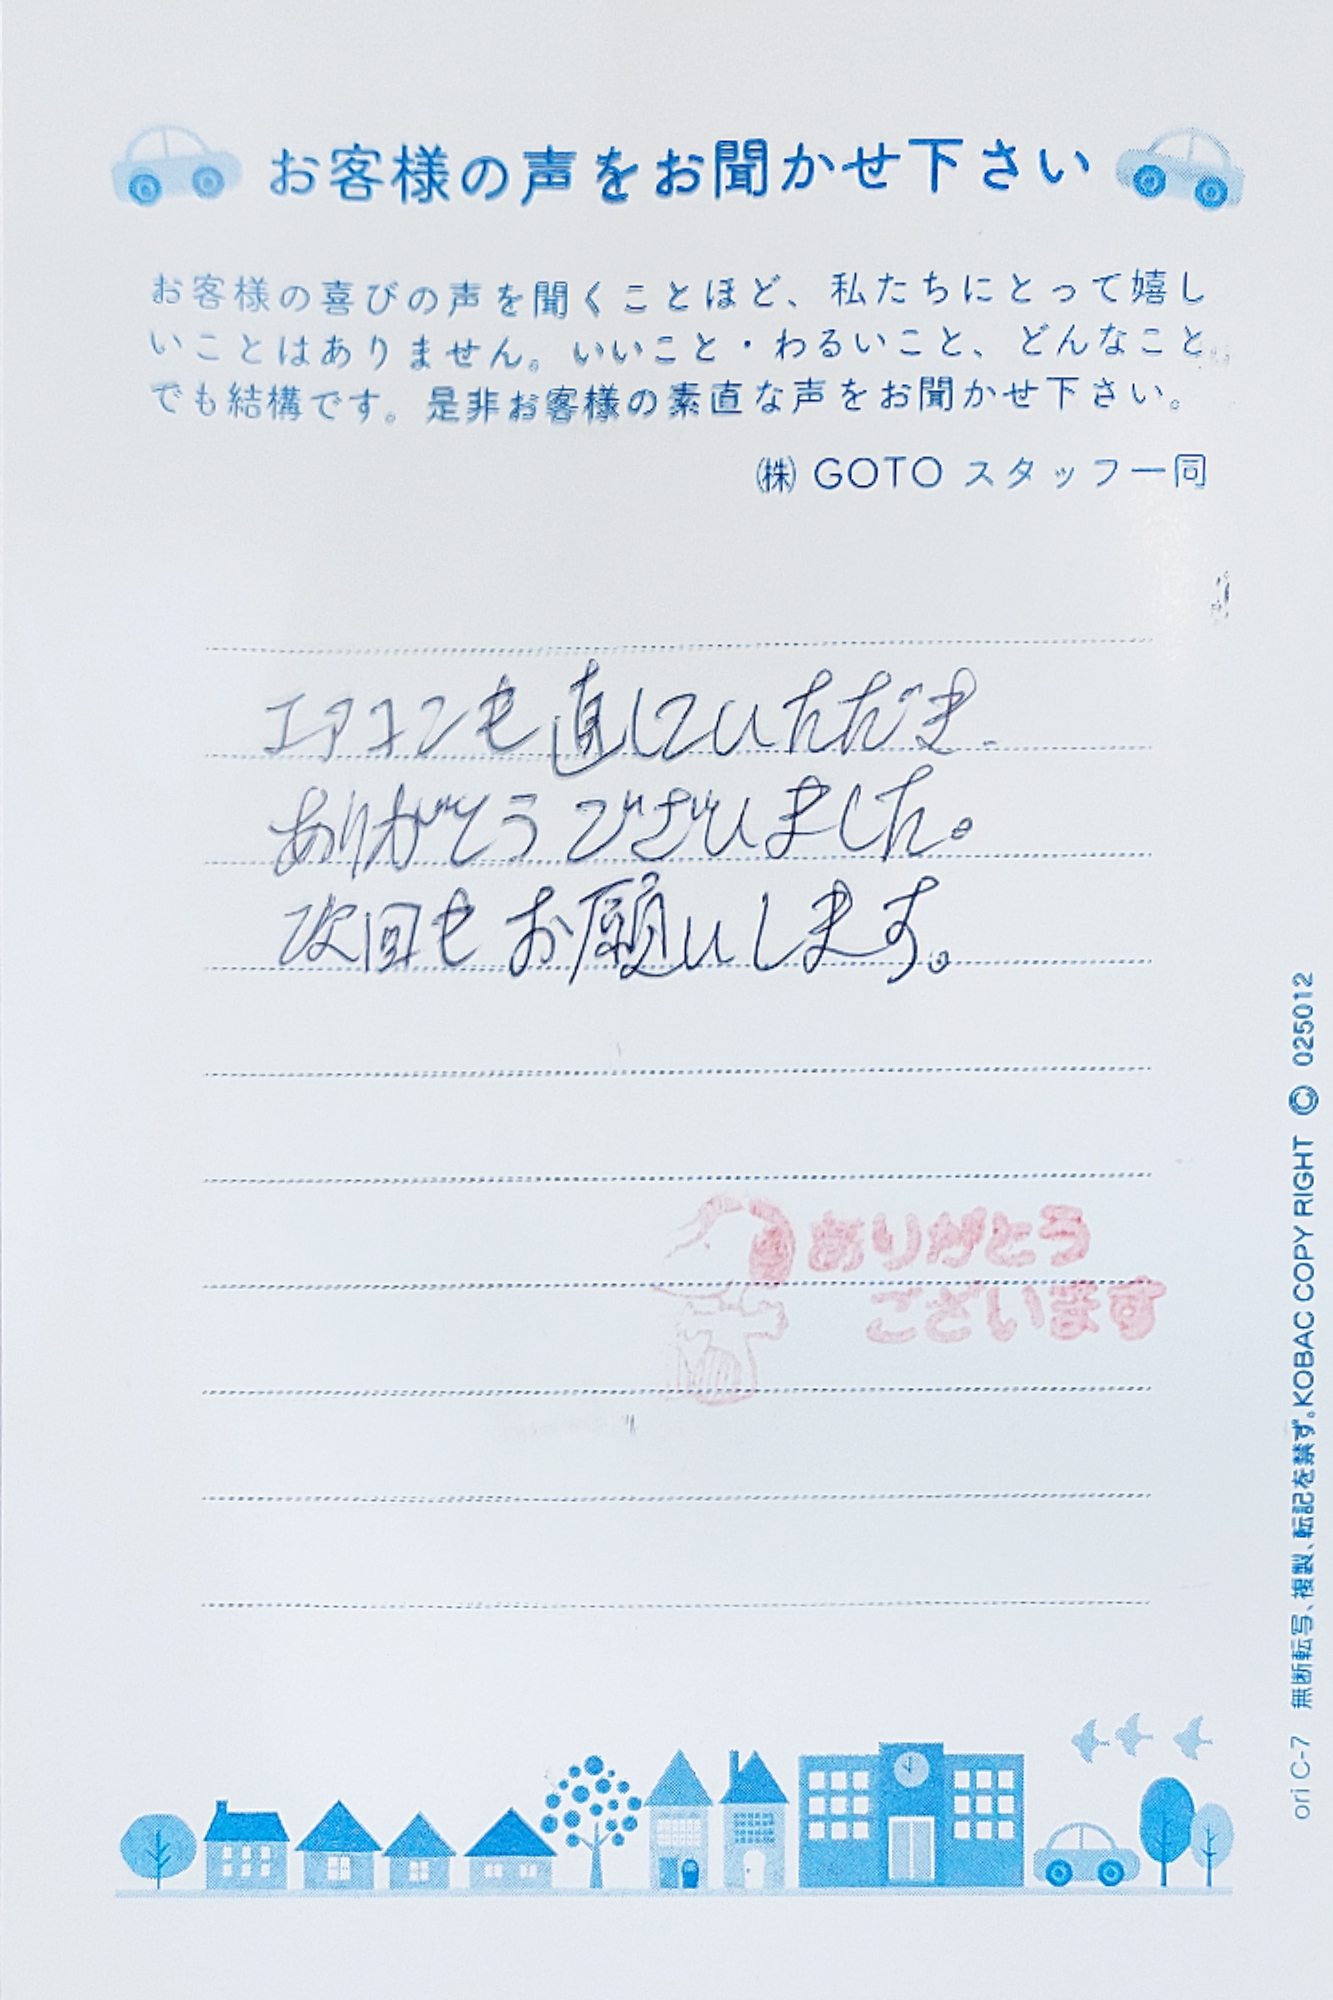 お客様の声をお聞かせ下さい
お客様の喜びの声を聞くことほど、私たちにとって嬉し
いことはありません。いいこと・わるいこと、どんなこと
でも結構です。是非お客様の素直な声をお聞かせ下さい。
㈱ GOTO スタッフ一同
エアコンも直していただき、
ありがとうございました。
次回もお願いします。
ありがとう
ございます
ori C-7 無断転写、複製、転記を禁ず。KOBAC COPY RIGHT © 025012